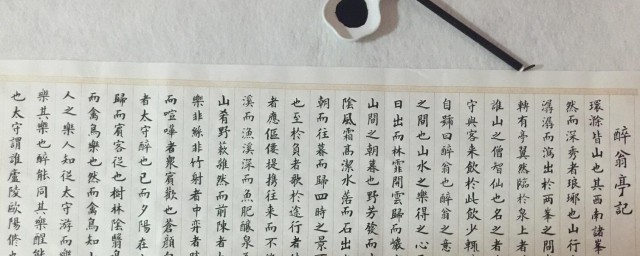 醉翁亭記
環滁皆山也其西南諸峯
然而深秀者琅琊也山行
潺潺而瀉出於兩峯之間
轉有亭翼然臨於泉上者
誰山之僧智仙也名之者
守與客來飲於此飲少輒
自號曰醉翁也醉翁之意
之間也山水之樂得之心
日出而林霏開雲歸而巖
山間之朝暮也野芳發而
陰風霜高潔水落而石出
朝而往暮而歸四時之景
也至於負者歌於途行者
者應傴僂提携往來而不
溪而漁溪深而魚肥釀泉
山肴野蔌雜然而前陳者
樂非絲非竹射者中弈者
而喧嘩者衆賓歡也蒼顏
者太守醉也已而夕陽在
歸而賓客從也樹林陰翳
而禽鳥樂也然而禽鳥知
人之樂人知從太守游而樂
樂其樂也醉能同其樂醒能
也太守謂誰廬陵歐陽脩也